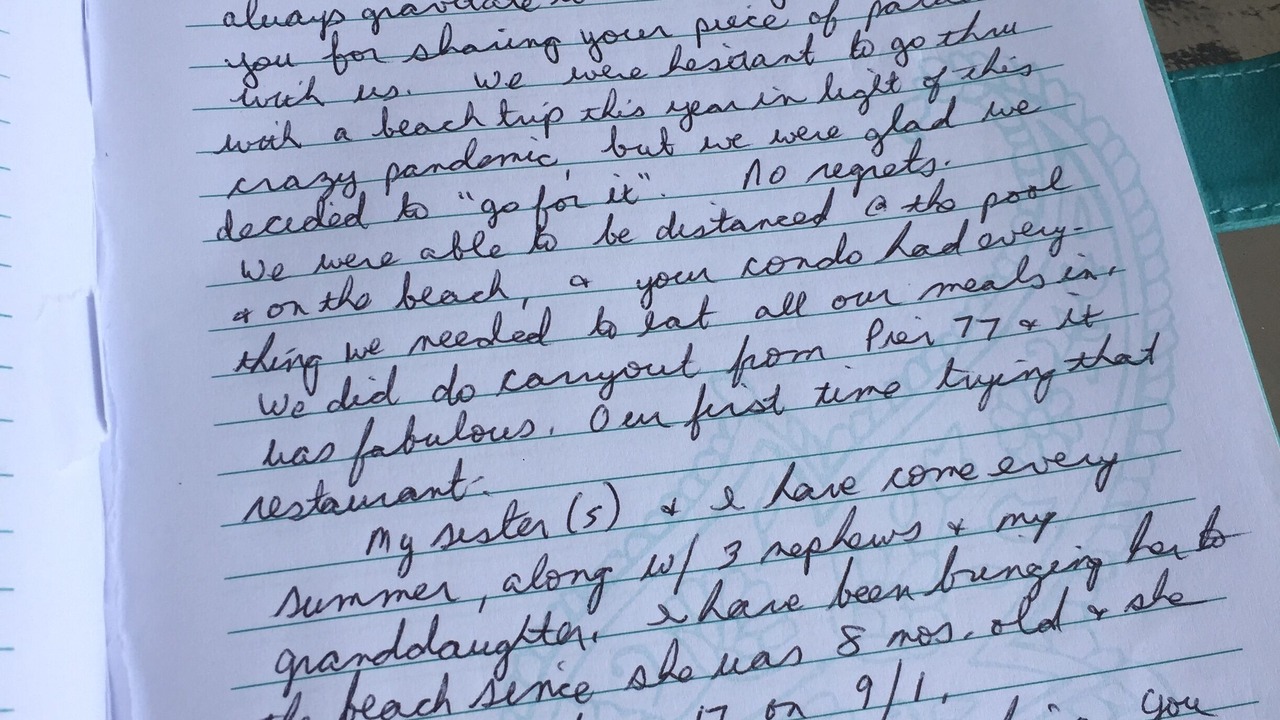 always gravitate
you for sharing your piece of
with us. We were hesitant to go thru
with a beach trip this year in light of this
crazy pandemic, but we were glad we
decided to "go for it". No regrets.
We were able to be distanced @ the pool
& on the beach, & your condo had every-
thing we needed to eat all our meals in.
We did do carryout from Pier 77 & it
was fabulous. Our first time trying that
restaurant.
My sister(s) & I have come every
summer, along w/ 3 nephews & my
granddaughter. I have been bringing her to
the beach since she was 8 mos. old & she
17 on 9/1.
you